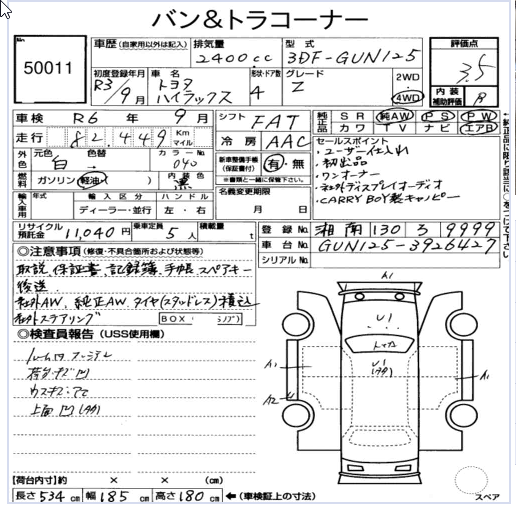 バン&トラコーナー
No.
50011
車歴 (自家用以外は記入) 排気量 型式
2400cc 3DF-GUN125
評価点
3.5
初度登録年月 車名 形状・ドア数 グレード
R3/9月 トヨタ ハイラックス 4 Z
2WD
4WD
内装補助評価 B
車検 R6年 9月 シフト FAT
純正品 SR 純AW PS PW
カワ TV ナビ エアB
走行 82,449 Km マイル
冷房 AAC
外色 元色 白 色替 カラーNo. 040
新車整備手帳(保証書付) 有・無
※書類と一緒に保管下さい。
燃料 ガソリン 軽油 ( ) 内装色 黒
セールスポイント
・ユーザー仕入れ
・初出品
・ワンオーナー
・社外ディスプレイオーディオ
・CARRY BOY製キャノピー
輸入車用 年式 輸入区分 ハンドル
ディーラー・並行 左・右
名義変更期限
月 日
リサイクル預託金 11,040円 乗車定員 5人 積載量 t
登録No. 湘南 130 る 9999
車台No. GUN125-3926427
シリアルNo.
◎注意事項 (修復・不具合箇所および状態等)
取説、保証書、記録簿、手帳、スペアキー
後送
社外AW、純正AWタイヤ(スタッドレス)積込
社外ステアリング
BOX
◎検査員報告 (USS使用欄)
荷台キズ凹
A1
U1
トメカエ
U1
A1
A2
A1
[荷台内寸] 約 × × (cm)
長さ 534 cm 幅 185 cm 高さ 180 cm ←(車検証上の寸法)
スペア